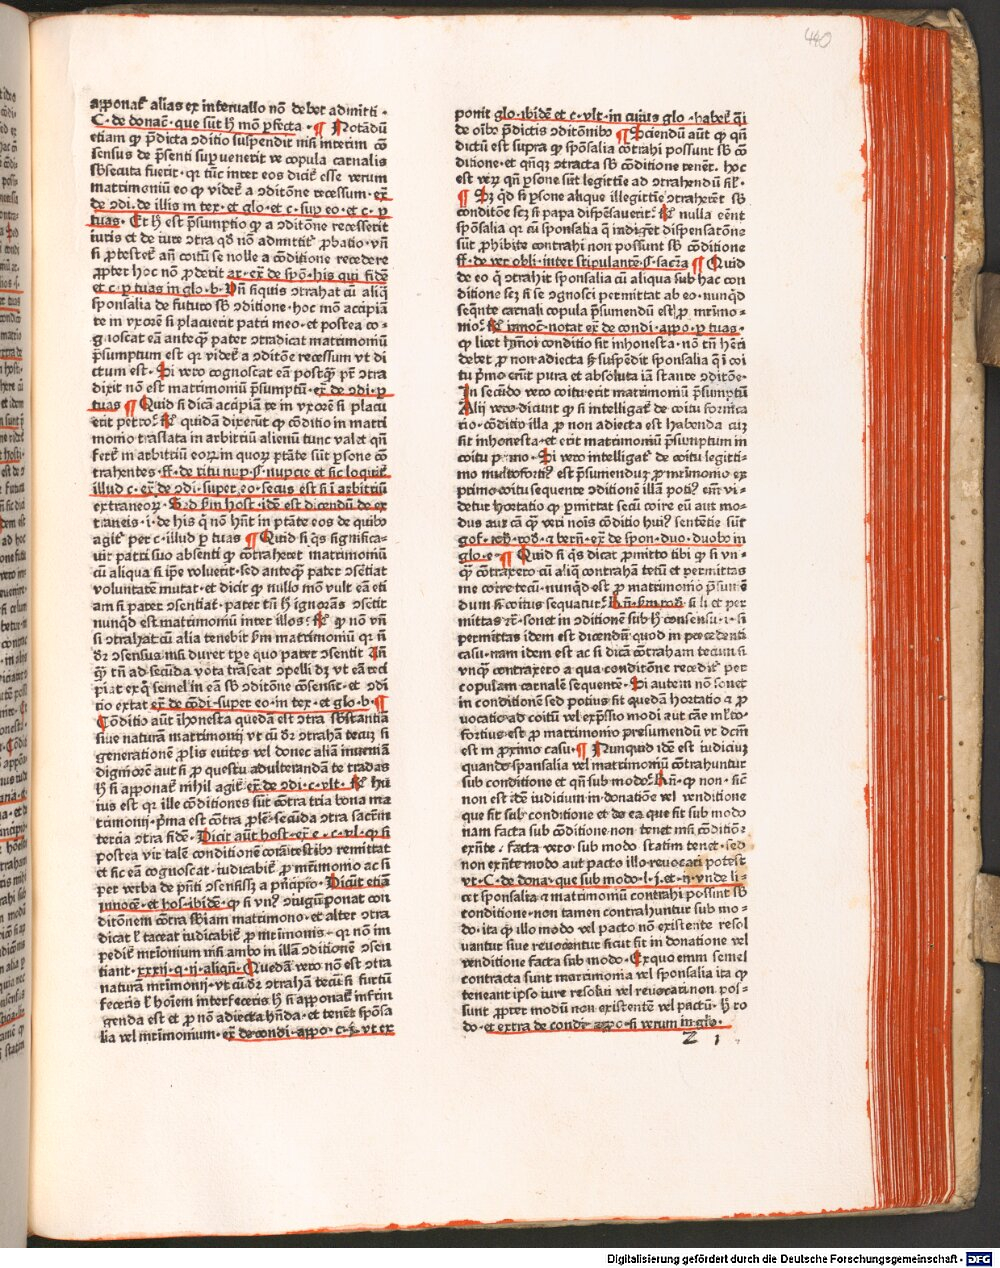 440
apponat̃ alias ex interuallo nõ debet admitti ·
C · de donac̃ · que sũt h̃ mõ ꝑfecta · ¶ Notãdũ
etiam ꝙ p̃dicta ꝯditio suspendit nisi interim cõ
sensus de p̃senti superuenerit ve copula carnalis
sb̃secuta fuerit · qꝛ tũc inter eos dicit̃ esse verum
matrimoniũ eo ꝙ videt̃ a ꝯditõne recessum · ex̃
de ꝯdi · de illis in tex · et glo · et c · sup eo · et c · ꝑ
tuas · Et h̃ est p̃sumptio ꝙ a ꝯditõne recesserit
iuris et de iure ꝯtra qð nõ admittit̃ ꝓbatio · vñ
si ꝓtestet̃ añ coitũ se nolle a cõditione recedere
ꝓpter hoc nõ ꝓderit ar · ex̃ de spõ · his qui fidẽ
et c · ꝑ tuas in glo · b · Vñ siquis ꝯtrahat cũ aliq̃
sponsalia de futuro sb̃ ꝯditione · hoc mõ accipiã
te in vxorẽ si placuerit patri meo · et postea co-
gnoscat eã anteq̃ pater ꝯtradicat matrimoniũ
p̃sumptum est qꝛ videt̃ a ꝯditõe recessum vt di
ctum est · Si vero cognoscat eam postq̃ pr̃ ꝯtra
dixit nõ est matrimoniũ p̃sumptũ · ex̃ de ꝯdi · ꝑ
tuas ¶ Quid si dicã accipiã te in vxorẽ si placu
erit petro · R̃ quidã dixerũt ꝙ cõditio in matri
monio traslata in arbitriũ alienũ tunc valet qñ
fert̃ in arbitriũ eorũ in quorũ ptãte sũt ꝑsone cõ
trahentes · ff · de ritu nup · §· nupcie et sic loquit̃
illud c · ex̃ de ꝯdi · super eo · secus est si ĩ arbitriũ
extraneorũ · Sed ẜm host · idẽ est dicendũ de ex
traneis · i · de his q̃ nõ hñt in ptãte eos de quibo
agit̃ per c · illud ꝑ tuas ¶ Quid si q̃s significa-
uit patri suo absenti ꝙ cõtraheret matrimoniũ
cũ aliqua si ip̃e voluerit · sed anteq̃ pater ꝯsẽtiat
voluntatẽ mutat · et dicit ꝙ nullo mõ vult eã eti
am si pater ꝯsentiat · pater tñ h̃ ignorãs ꝯsẽtit
nunqd est matrimoniũ inter illos · R̃ ꝙ nõ vñ
si ꝯtrahat cũ alia tenebit ẜm matrimoniũ qꝛ ñ
dr̃ ꝯsensus nisi duret tp̃e quo pater ꝯsentit Añ
q̃ tñ ad secũda vota trãseat ꝯpelli dꝫ vt eã reci
piat ex q̃ semel in eã sb̃ ꝯditõne cõsensit · et ꝯdi
tio extat ex̃ de cõdi · super eo · in tex · et glo · b · ¶
Cõditio aũt ĩhonesta quedã est ꝯtra sb̃stantiã
siue naturã matrimonij vt cũ dr̃ ꝯtrahã tecũ si
generationẽ ꝓlis euites vel donec aliã inueniã
digniorẽ aut si ꝓ questu adulterandã te tradas
H̃ si apponat̃ nihil agit̃ ex̃ de ꝯdi · c · vlt · R̃ hu
ius est qꝛ ille cõditiones sũt cõtra tria bona ma
trimonij · p̃ma est cõtra ꝓlẽ · secũda ꝯtra sacrm̃
tercia ꝯtra fidẽ · Dicit aũt host · ex̃ e · c · vl · ꝙ si
postea vir talẽ conditionẽ corã testibo remittat
et sic eã cognoscat · iudicabit̃ ꝓ mr̃imonio ac si
per verba de p̃nti ꝯsensiss̃ a p̃ncipio · Dicũt etiã
innocẽ · et hos · ibidẽ · ꝙ si vn̾ ꝯiugũ ponat con
ditõnem cõtra sb̃iam matrimonio · et alter ꝯtra
dicat l̃ taceat iudicabit̃ ꝓ mr̃imonio · qꝛ nõ im
pedit̃ mr̃imonium nisi ambo in illã ꝯditionẽ ꝯsen
tiant · xxxij · q · ij · aliqñ · Quedã vero nõ est ꝯtra
naturã mr̃imonij · vt cũ dr̃ ꝯtrahã tecũ si furtũ
feceris l̃ hoĩem interfeceris h̃ si apponat̃ infrin
genda est et ꝓ nõ adiecta hñda · et tenẽt spõsa
lia vel mr̃imonium · ex̃ de condi · appo · c · j · vt ex
ponit glo · ibidẽ et c · vlt · in cuius glo · habet̃ q̃i
de oĩbo p̃dictis ꝯditõnibo ¶ Sciendũ aũt ꝙ qñ
dictũ est supra ꝙ spõsalia cõtrahi possunt sb̃ cõ
ditione · et qñqꝫ ꝯtracta sb̃ cõditione tenẽt · hoc
est verꝫ qñ ꝑsone sũt legittie ad ꝯtrahendũ sil̃ ·
¶ Sꝫ qd si ꝑsone alique illegittie ꝯtraherẽt sb̃
conditõne scꝫ si papa dispẽsauerit · R̃ nulla eẽnt
spõsalia qꝛ cũ sponsalia q̃ indiget dispensatõne
sũt ꝓhibite contrahi non possunt sb̃ cõditione
ff · de ver · obli · inter stipulantẽ · §· sacra ¶ Quid
de eo q̃ ꝯtrahit sponsalia cũ aliqua sub hac con
ditione scꝫ si se ꝯgnosci permittat ab eo · nunqd
seq̃nte carnali copula p̃sumendũ est ꝓ mr̃imo-
nio · R̃ innoc̃ · notat ex̃ de condi · appo · ꝑ tuas ·
ꝙ licet hmõi conditio sit inhonesta · nõ tñ hẽri
debet ꝓ non adiecta sꝫ suspẽdit sponsalia q̃ ĩ coi
tu p̃mo erũt pura et absoluta iã stante ꝯditõe ·
In secũdo vero coitu erit matrimoniũ p̃sumptũ
Alij vero dicunt ꝙ si intelligat̃ de coitu fornica
rio · cõditio illa ꝓ non adiecta est habenda cuꝫ
sit inhonesta · et erit matrimoniũ p̃sumptum in
coitu p̃mo · Si vero intelligat̃ de coitu legitti-
mo multofortiꝰ est p̃sumenduꝫ ꝓ mr̃imonio ex
primo coitu sequente ꝯditionẽ illam poti̾ em̃ vi-
detur hortatio ꝙ permittat secũ coire eũ aut mo-
dus aut cã ꝙ veri nois cõditio hui̾ sentẽtie sũt
gof · reb̃ · ro · ⁊ bern̄ · ex̃ de spon · duo · duobo in
glo · e · ¶ Quid si q̃s dicat ꝓmitto tibi ꝙ si vn-
q̃ cõtraxero cũ aliq̃ contrahã tecũ et permittas
me coire tecũ · nunqd est ꝓ matrimonio p̃sumẽ
dum si coitus sequatur · R̃ñ · ẜm rob̃ · si li et per
mittas r̃c · sonet in ꝯditionẽ sub h̃ consensu · i · si
permittas idem est dicendũ quod in precedenti
casu · nam idem est ac si dicã cõtraham tecum si
vnq̃ contraxero a qua conditõne recedit̃ per
copulam carnalẽ sequentẽ · Si autem nõ sonet
in conditionẽ sed potius sit quedã hortatio ⁊ ꝓ
vocatio ad coitũ vel exp̃ssio modi aut cãe ml̃to
fortius est ꝓ matrimonio presumendũ vt dcm̃
est in ꝓximo casu · ¶ Nunquid idẽ est iudiciuꝫ
quando sponsalia vel matrimoniũ cõtrahuntur
sub conditione et qñ sub modo · R̃ñ · ꝙ non · sic̃
non est idẽ iudicium in donatiõe vel venditione
que fit sub conditione et de ea que fit sub modo
nam facta sub cõditione non tenet nisi cõditiõe
exñte · facta vero sub modo statim tenet · sed
non exñte modo aut pacto illo reuocari potest
vt · C · de dona · que sub modo · l · j · et · ij · vnde li-
cet sponsalia ⁊ matrimoniũ contrahi possint sb̃
conditione · non tamen contrahuntur sub mo-
do · ita ꝙ illo modo vel pacto nõ existente resol
uantur siue reuocentur sicut fit in donatione vel
venditione facta sub modo · Exquo enim semel
contracta sunt matrimonia vel sponsalia ita ꝙ
teneant ipso iure resolui vel reuocari non pos-
sunt ꝓpter modũ non existentẽ vel pactũ · H̃ ro
do · et extra de condi · appo · si verum in glo ·
Z 1
Digitalisierung gefördert durch die Deutsche Forschungsgemeinschaft - DFG